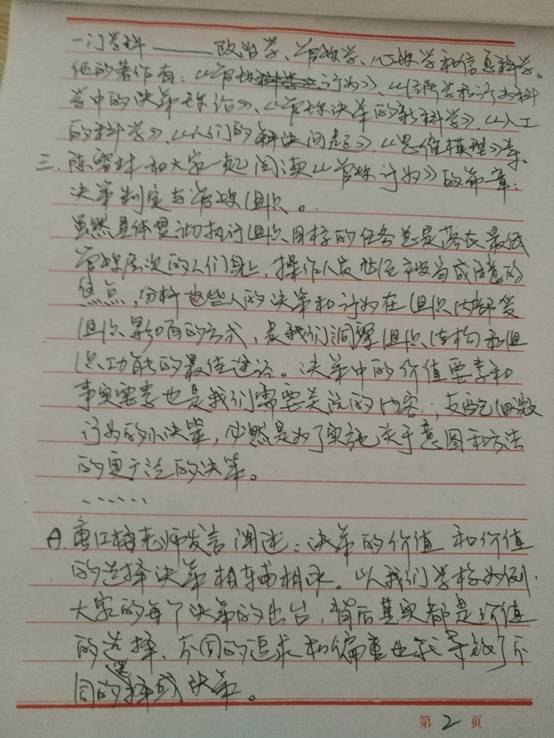 一门学科——政治学、管理学、心理学和信息科学。
他的著作有：《管理行为》、《经济学和行为科
学中的决策理论》、《管理决策的新科学》、《人工
的科学》、《人们的解决问题》《思维模型》等。
三、陈 和大家一起阅读《管理行为》的第一章：
决策制定与管理组织。
虽然具体贯彻执行组织目标的任务总是落在最低
管理层次的人们身上，操作人员 应当成注意的
焦点，分析这些人的决策和行为在组织内部受
组织影响的方式，是我们洞察组织结构和组
织功能的最佳途径。决策中的价值要素和
事实要素也是我们需要关注的内容；支配细微
行为的小决策，必然是为了实施关于意图和方法
的更广泛的决策。
……
A. 老师发言阐述：决策的价值和价值
的选择决策相辅相承。以我们学校为例，
大家的每个决策的出台，背后其实都是价值
的选择，不同的追求和偏重也就导致了不
同的选择或决策。
第 2 页